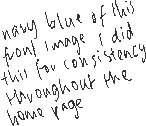 navy blue of this
front image I did
this for consistency
throughout the
home page